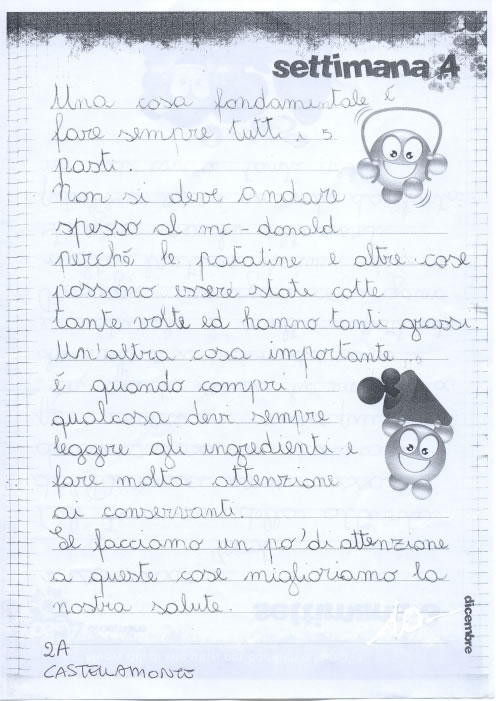 settimana 4
Una cosa fondamentale é
fare sempre tutti i 5
pasti.
Non si deve andare
spesso al mc-donald
perché le patatine e altre cose
possono essere state cotte
tante volte ed hanno tanti grassi.
Un'altra cosa importante
é quando compri
qualcosa devi sempre
leggere gli ingredienti e
fare molta attenzione
ai conservanti.
Se facciamo un po' di attenzione
a queste cose miglioriamo la
nostra salute.
dicembre
2A
CASTELLAMONTE